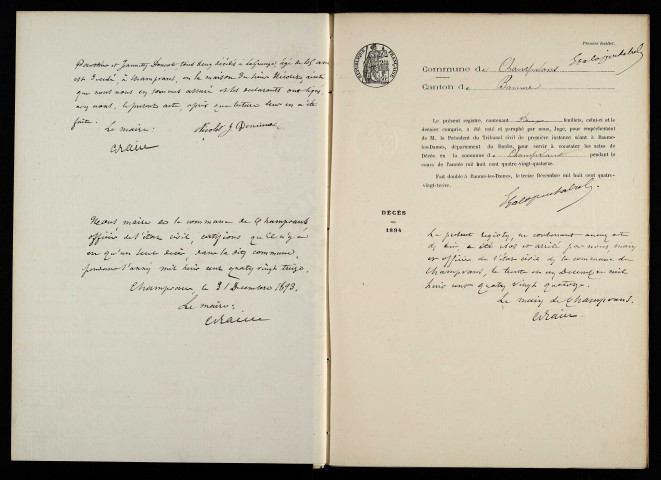 est décédé à Champvans, en la maison du sieur Nicolet, ainsi
que nous nous en sommes assuré et les déclarants ont signé
avec nous, le présent acte, après que lecture leur en a été
faite.
Le maire:
Nous maire de la commune de Champvans,
officier de l'état civil, certifions qu'il n'y a
eu qu'un seul décès, dans la dite commune,
pendant l'année mil huit cent quatre vingt treize.
Champvans, le 31 Décembre 1893.
Le maire:
Premier feuillet.
RÉPUBLIQUE FRANÇAISE
Commune de Champvans
Canton de Baume
Le présent registre, contenant feuillets, celui-ci et le
dernier compris, a été coté et paraphé par nous, Juge, pour empêchement
de M. le Président du Tribunal civil de première instance séant à Baume-
les-Dames, département du Doubs, pour servir à constater les actes de
Décès en la commune de Champvans pendant le
cours de l'année mil huit cent quatre-vingt-quatorze.
Fait double à Baume-les-Dames, le treize Décembre mil huit cent quatre-
vingt-treize.
DÉCÈS
1894
Le présent registre, ne contenant aucun acte
de décès, a été clos et arrêté par nous, maire
et officier de l'état civil de la commune de
Champvans, le trente un Décembre mil
huit cent quatre vingt quatorze.
Le maire de Champvans.